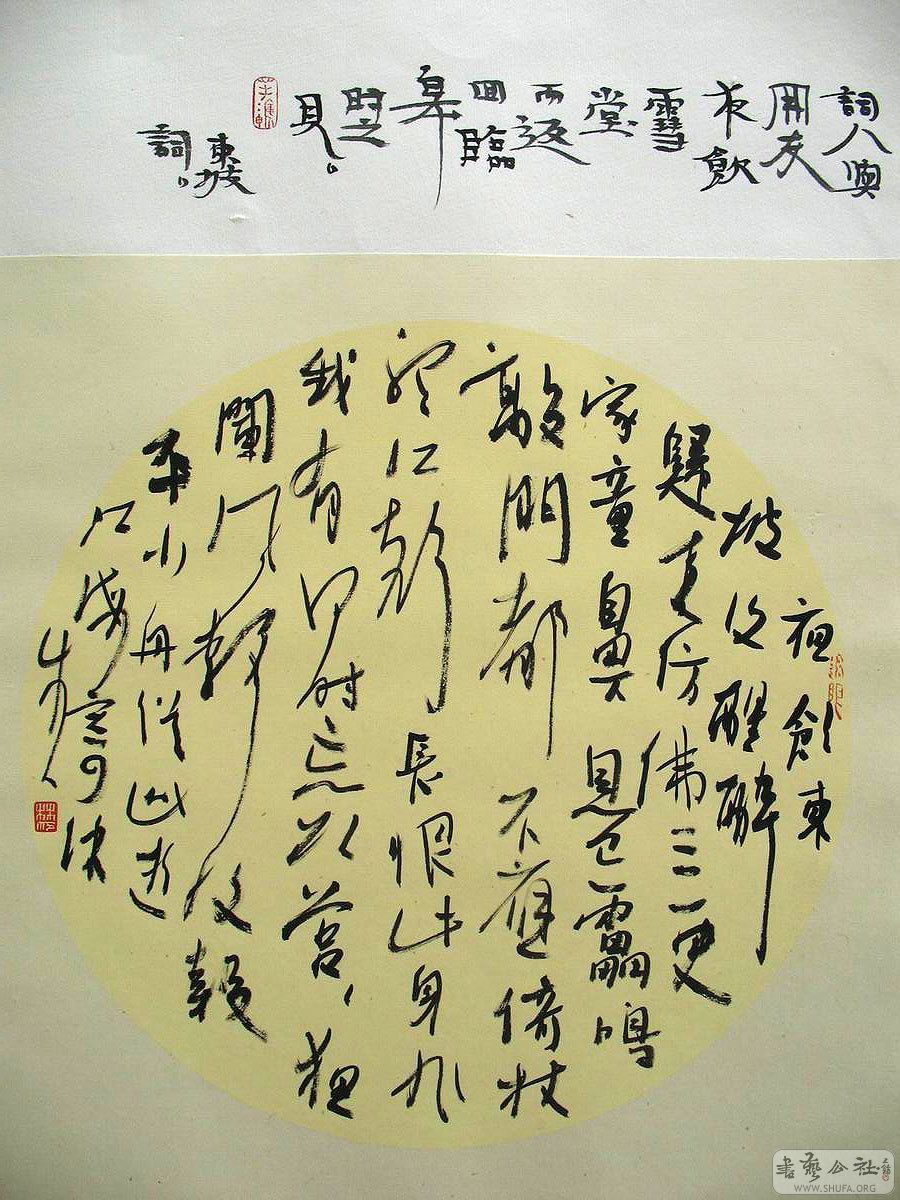 詞人與
朋友
夜飲
雪
堂
而返
回臨
皋
時之
東坡
詞
夜飲東
坡復醒醉
歸來仿佛三更
家童鼻息已雷鳴
敲門都不應倚杖
聽江聲長恨此身非
我有何時忘卻營〻夜
闌風靜縠
平小舟從此逝
江海寄
書藝公社
WWW.SHUFA.ORG